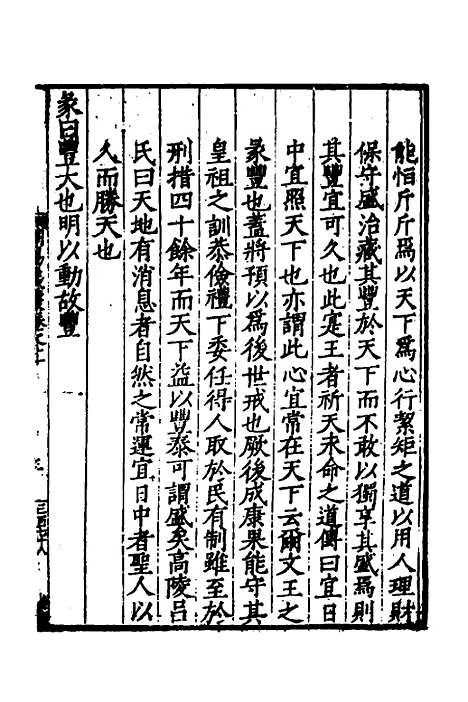 能怕斤斤爲以天下爲心行絜矩之道以用人理財
保守盛治藏其豐於天下而不敢以獨享其盛爲則
其豐宜可久也此寔王者祈天永命之道傳曰宜日
中宜照天下也亦謂此心宜常在天下云爾文王之
彖豐也蓋將預以爲後世戒也厥後成康果能守其
皇祖之訓恭儉禮下委任得人取於民有制雖至於
刑措四十餘年而天下益以豐泰可謂盛矣高陵吕
氏曰天地有消息者自然之常運宜日中者聖人以
久而勝天也
彖曰豐大也明以動故豐